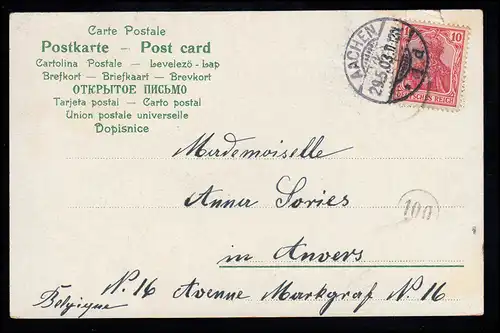 Carte Postale
Postkarte — Post card
Cartolina Postale — Levelező - Lap
Brefkort — Briefkaart — Brevkort
ОТКРЫТОЕ ПИСЬМО
Tarjeta postal — Carto postal
Union postale universelle
Dopisnice
AACHEN
29.5.03.
* 1 d
10
DEUTSCHES REICH
Mademoiselle
Anna Sories
in Anvers
100
N. 16 Avenue Markgraf N. 16
Belgique